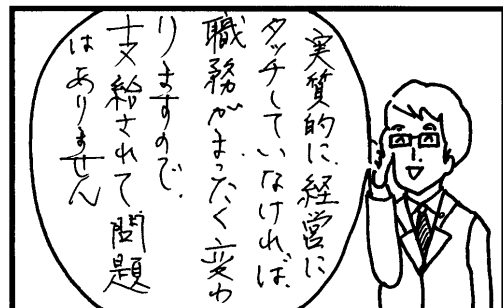 実質的に、経営に
タッチしていなければ、
職務がまったく変わ
りますので、
支給されて問題
はありません